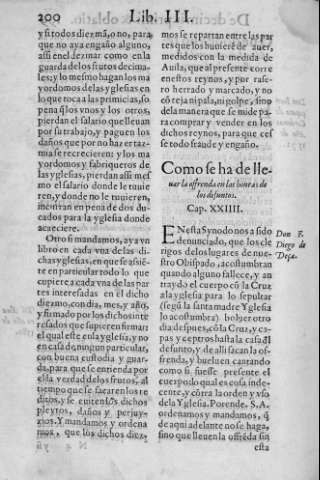 200 Lib. III.
y si todos diezmã, o no, para
que no aya engaño alguno,
assi en el dezmar como en la
guarda de los frutos decima-
les; y lo mesmo hagan los ma
yordomos de las yglesias en
lo que toca a las primicias, so
pena q̃ los vnos y los otros,
pierdan el salario que lleuan
por su trabajo, y paguen los
daños que por no hazer taz-
mia se recrecieren: y los ma
yordomos y fabriqueros de
las yglesias, pierdan assi mes
mo el salario donde le tuuie
ren, y donde no le tuuieren,
incurran en pena de dos du-
cados para la yglesia donde
acaeciere.
Otro si mandamos, aya vn
libro en cada vna de las di-
chas yglesias, en que se assiē-
te en particular todo lo que
cupiere a cada vna de las par
tes interesadas en el dicho
diezmo, con dia, mes, y año,
y firmado por los dichos inte
resados que supieren firmar:
el qual estè en la yglesia, y no
en casa de ningun particular,
con buena custodia y guar-
da, para que se entienda por
ella verdad de los frutos, al
tiempo que se sacaren los re
ditos, y se euiten los dichos
pleytos, daños y perjuy-
zios. Y mandamos y ordena
mos, que los dichos diez,
mos se repartan entre las par
tes que los huuierē de auer,
medidos con la medida de
Auila, que al presente corre
en estos reynos, y por rase-
ro herrado y marcado, y no
cō teja ni pala, ni golpe, sino
de la manera que se mide pa-
ra comprar y vender en los
dichos reynos, para que ces
se todo fraude y engaño.
Como se ha de lle-
uar la ofrenda en las honras de
los defuntos.
Cap. XXIIII.
EN esta Synodo nos a sido
denunciado, que los cle
rigos de los lugares de nues-
tro Obispado, acostumbran
quando alguno fallece, y an
traydo el cuerpo cō la Cruz
a la yglesia para lo sepultar
(segũ la santa madre Yglesia
lo acostũbra) boluer otro
dia despues, cō la Cruz, y ca-
pas y ceptros hasta la casa d̃l
defunto, y de alli sacan la of-
frenda, y bueluen cantando
como si fuesse presente el
cuerpo: lo qual es cosa inde-
cente, y cōtra la orden y vso
de la Yglesia. Porende. S. A.
ordenamos y mandamos, q̃
de aqui adelante no se haga,
sino que lleuen la offrēda sin
esta
Don F.
Diego de
Deça.